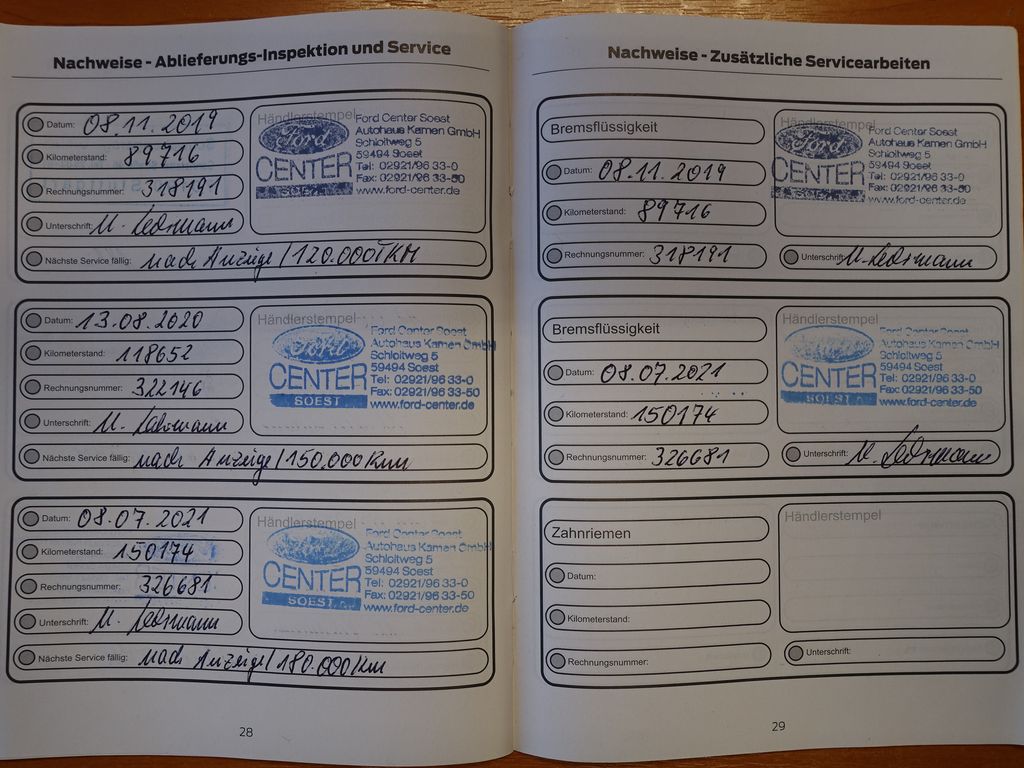 Nachweise - Ablieferungs-Inspektion und Service
Datum: 08.11.2019
Kilometerstand: 89716
Rechnungsnummer: 318191
Unterschrift: M.
Nächste Service fällig: nach Anzeige / 120.000TKM
Händlerstempel
Ford
CENTER
SOEST
Ford Center Soest
Autohaus Kamen GmbH
Schloitweg 5
59494 Soest
Tel: 02921/96 33-0
Fax: 02921/96 33-50
www.ford-center.de
Datum: 13.08.2020
Kilometerstand: 118652
Rechnungsnummer: 322146
Unterschrift: M.
Nächste Service fällig: nach Anzeige / 150.000Km
Händlerstempel
Ford
CENTER
SOEST
Ford Center Soest
Autohaus Kamen GmbH
Schloitweg 5
59494 Soest
Tel: 02921/96 33-0
Fax: 02921/96 33-50
www.ford-center.de
Datum: 08.07.2021
Kilometerstand: 150174
Rechnungsnummer: 326681
Unterschrift: M.
Nächste Service fällig: nach Anzeige / 180.000Km
Händlerstempel
Ford
CENTER
SOEST
Ford Center Soest
Autohaus Kamen GmbH
Schloitweg 5
59494 Soest
Tel: 02921/96 33-0
Fax: 02921/96 33-50
www.ford-center.de
28
Nachweise - Zusätzliche Servicearbeiten
Bremsflüssigkeit
Datum: 08.11.2019
Kilometerstand: 89716
Rechnungsnummer: 318191
Händlerstempel
Ford
CENTER
SOEST
Ford Center Soest
Autohaus Kamen GmbH
Schloitweg 5
59494 Soest
Tel: 02921/96 33-0
Fax: 02921/96 33-50
www.ford-center.de
Unterschrift: M.
Bremsflüssigkeit
Datum: 08.07.2021
Kilometerstand: 150174
Rechnungsnummer: 326681
Händlerstempel
Ford
CENTER
SOEST
Ford Center Soest
Autohaus Kamen GmbH
Schloitweg 5
59494 Soest
Tel: 02921/96 33-0
Fax: 02921/96 33-50
www.ford-center.de
Unterschrift: M.
Zahnriemen
Datum:
Kilometerstand:
Rechnungsnummer:
Händlerstempel
Unterschrift:
29